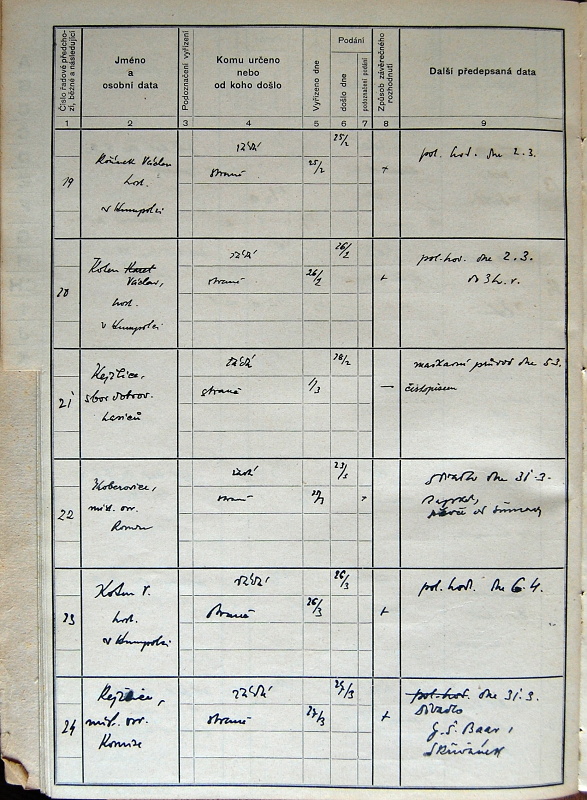 Číslo řadové předcho-
zí, běžné a následující
Jméno
a
osobní data
Podoznačení vyřízení
Komu určeno
nebo
od koho došlo
Vyřízeno dne
Podání
došlo dne
podoznačení podání
Způsob závěrečného
rozhodnutí
Další předepsaná data
1 2 3 4 5 6 7 8 9
19
Václav
host.
v Humpolci
žádá
straně
25/2
25/2
+
pol. hod. dne 2.3.
20
Kotен Karel
Václav,
host.
v Humpolci
žádá
straně
26/2
26/2
+
pol. hod. dne 2.3.
do 3 h. r.
21
Kejžlice,
sbor dobrov.
hasičů
žádá
straně
28/2
1/3
—
maškarní průvod dne 5.3.
čistopisem
22
Koberovice,
míst. osv.
Komise
žádá
straně
23/3
+
divadlo dne 31.3.
23
Koten V.
host.
v Humpolci
žádá
straně
26/3
26/3
+
pol. hod. dne 6.4.
24
Kejžlice,
míst. osv.
Komise
žádá
straně
27/3
27/3
+
pol. hod. dne 31.3.
Divadlo
J. Š. Baar,
Skřivánek